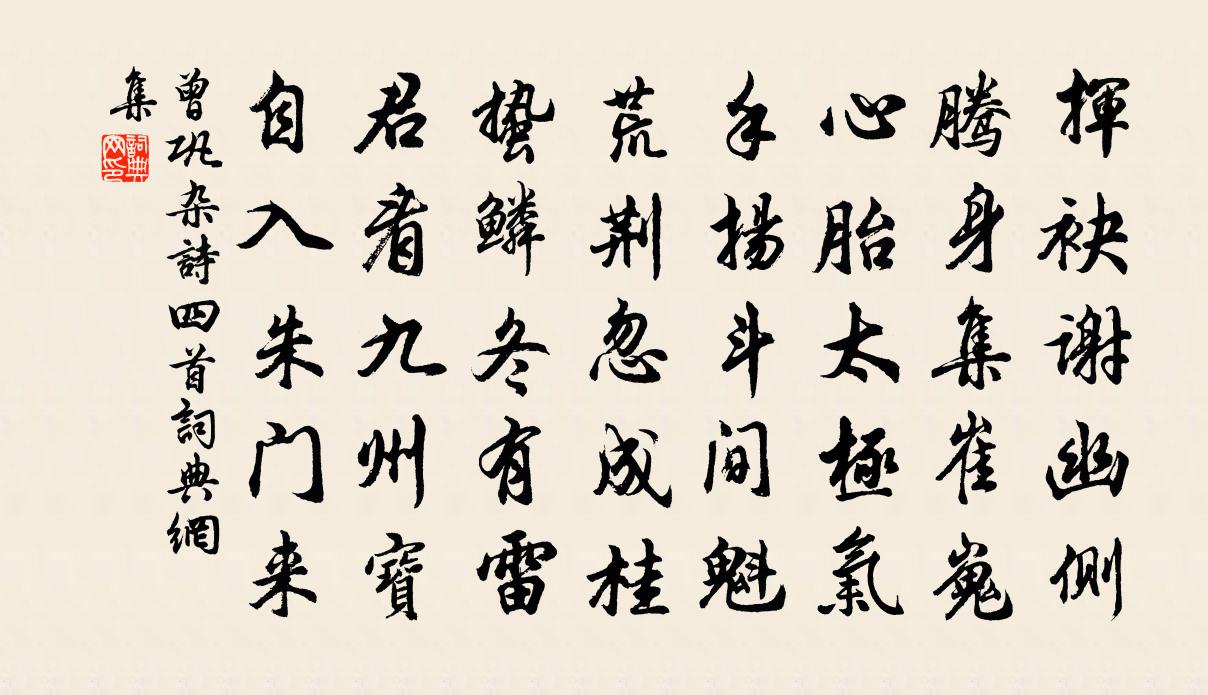 揮袂谢幽侧
騰身集崔嵬
心胎太極氣
手揚斗间魁
荒荆忽成桂
蛰鳞冬有雷
君看九州寶
自入朱门来
曾巩杂詩四首詞典網
集
詞典
网印